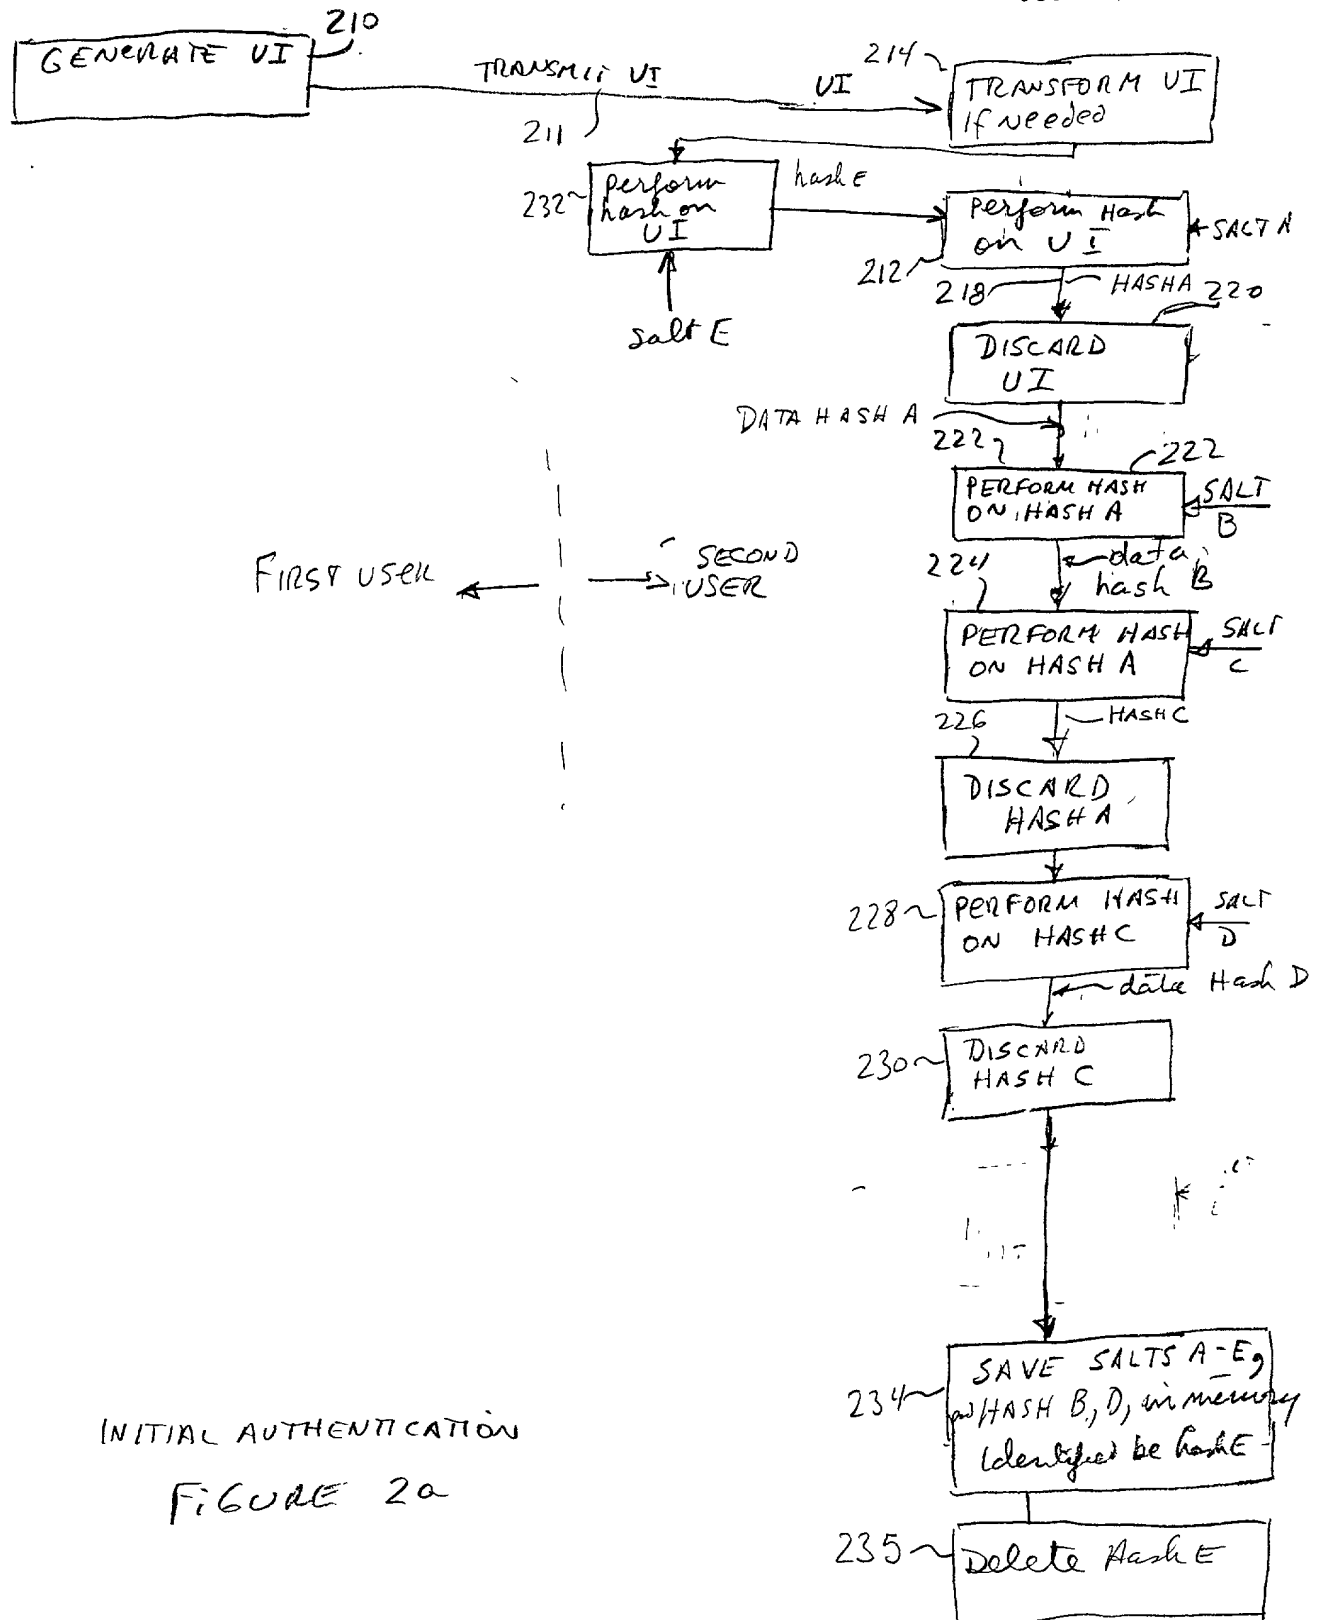 210
GENERATE UI
TRANSMIT UI
211
UI
214
TRANSFORM UI
if needed
232
perform
hash on
UI
hash E
salt E
Perform Hash
on UI
SALT A
212
218
HASH A
220
DISCARD
UI
DATA HASH A
222
222
PERFORM HASH
ON HASH A
SALT
B
FIRST USER
SECOND
USER
224
data
hash B
PERFORM HASH
ON HASH A
SALT
C
226
HASH C
DISCARD
HASH A
228
PERFORM HASH
ON HASH C
SALT
D
data Hash D
230
DISCARD
HASH C
234
SAVE SALTS A-E,
HASH B, D, in memory
identified be hash E
235
Delete Hash E
INITIAL AUTHENTICATION
FIGURE 2a